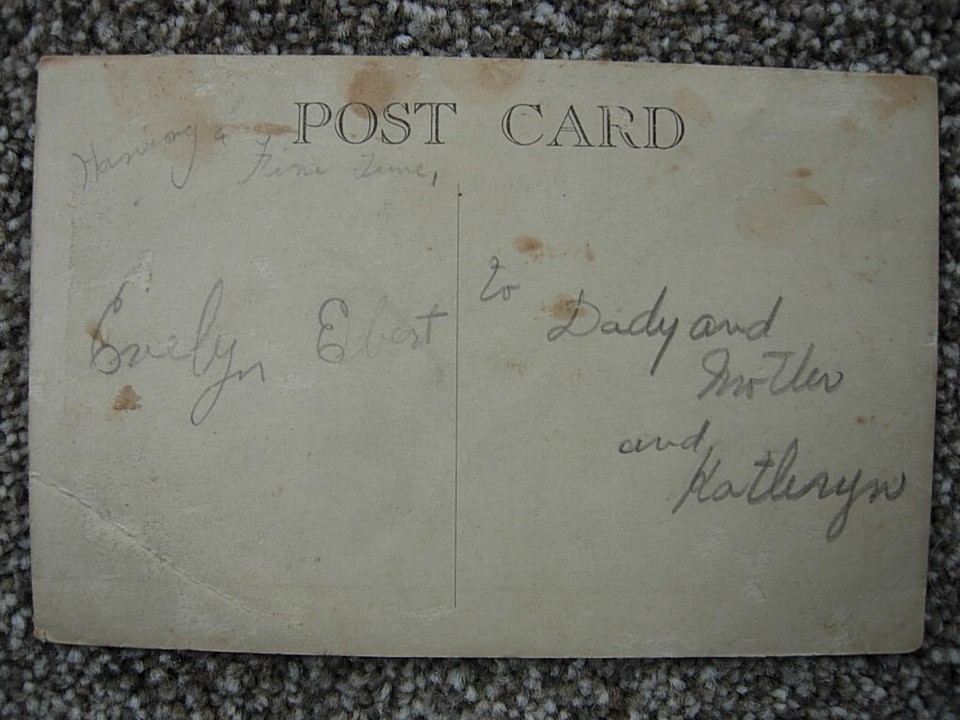 POST CARD
Having a
Fine time,
Evelyn Ebert
to
Dady and
Mother
and
Kathryn